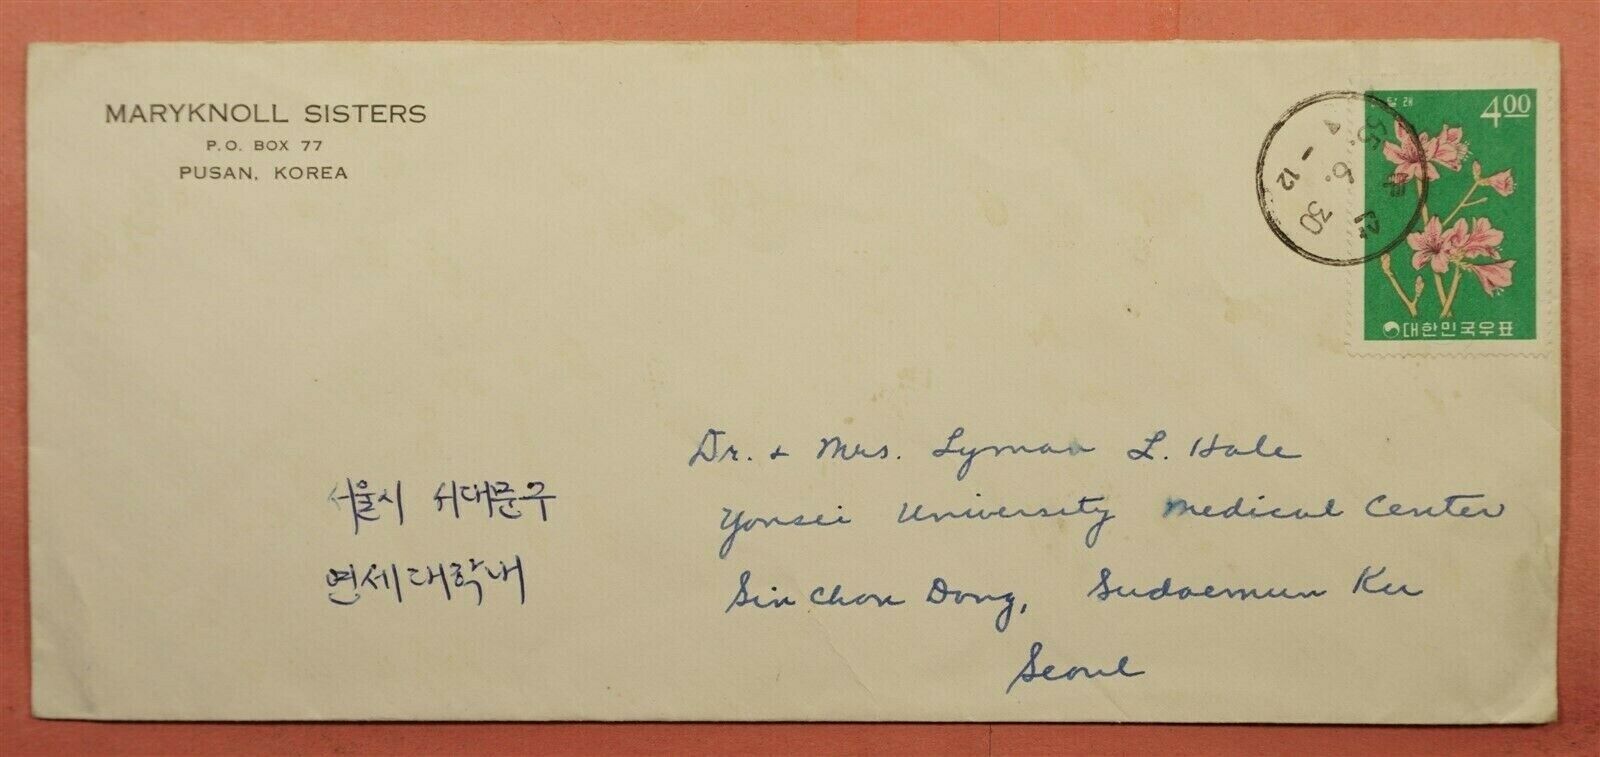 MARYKNOLL SISTERS
P.O. BOX 77
PUSAN, KOREA
달래
4.00
55. 6. 30
- 12
부산
대한민국우표
Dr. & Mrs. Lyman L. Hale
Yonsei University Medical Center
Sin Chon Dong, Sudaemun Ku
Seoul
서울시 서대문구
연세대학내